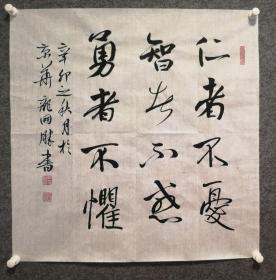 仁者不憂
智者不惑
勇者不懼
辛卯之秋月於
京華龍向勝書